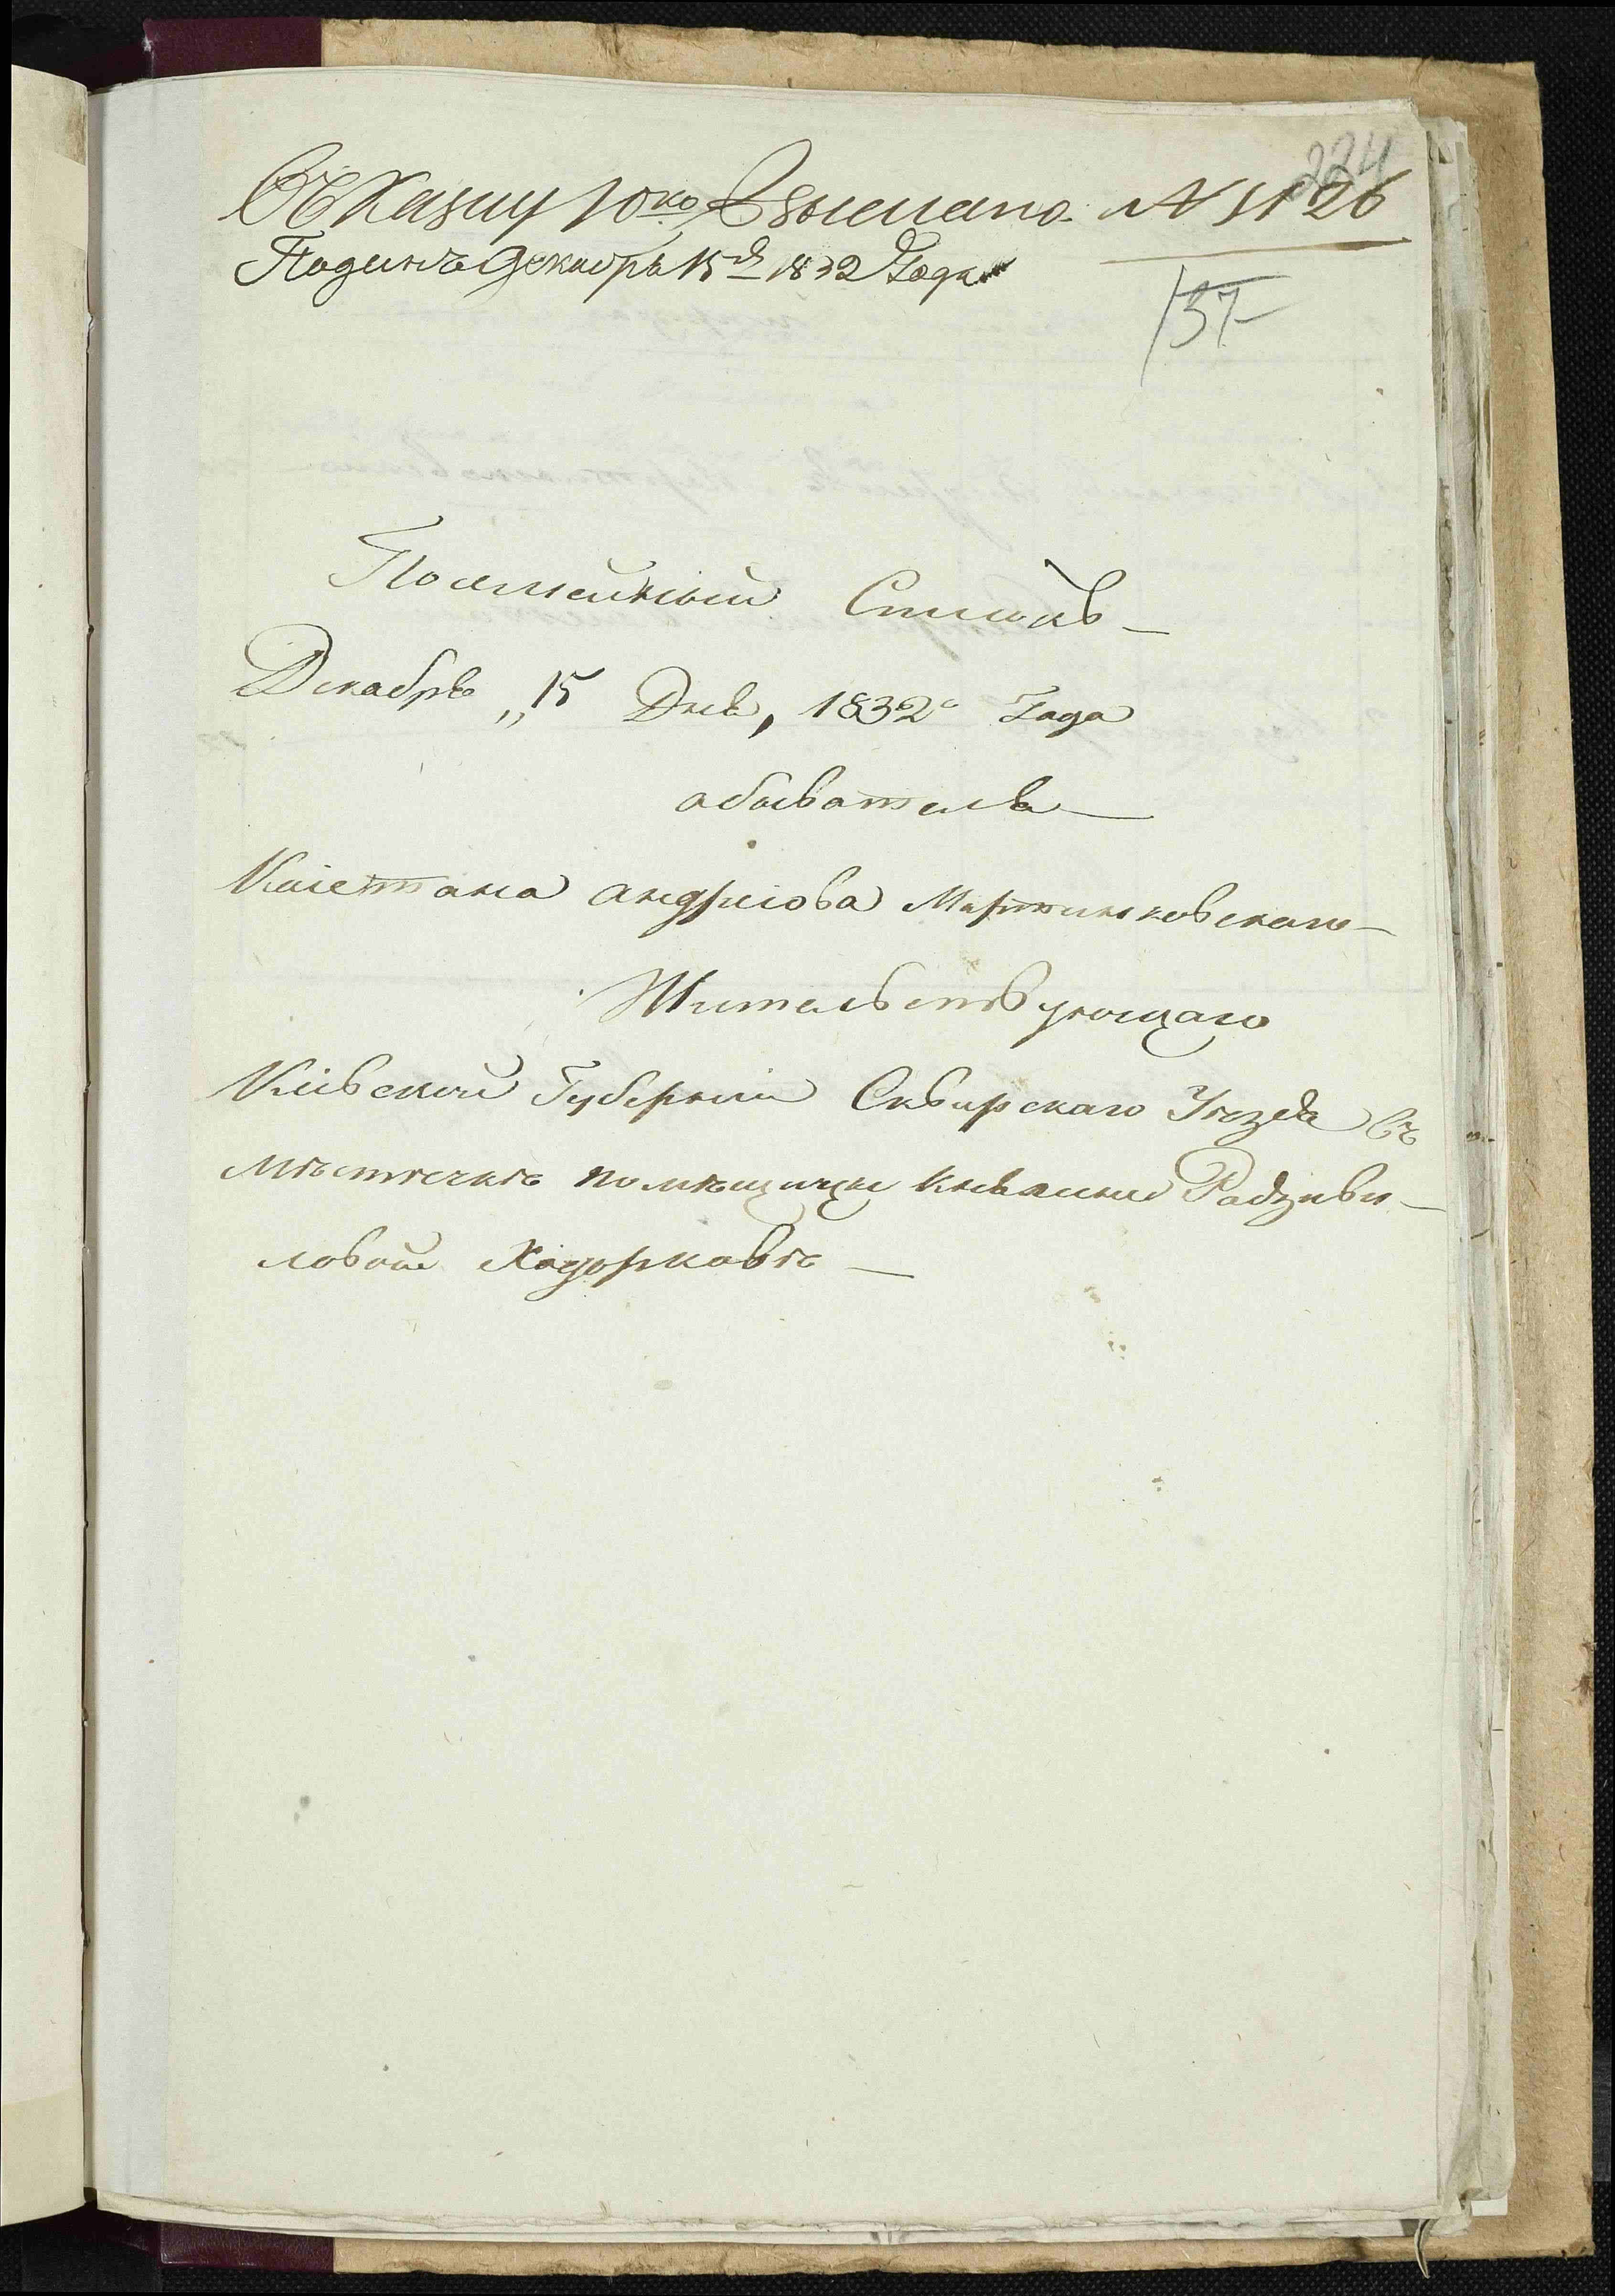 224
Въ Казну 10 ко Взыскано № 1126
Поданъ Декабря 15 д 1832 Года
137
Посемейный Списокъ
Декабря „15 Дня, 1832 Года
обывателя
Каіетана Андріова Мартинковскаго
Жительствующаго
Кіевской Губерніи Сквирскаго Уѣзда Въ
мѣстечкѣ помѣщицы Княгини Радзиви-
ловой Ходорковѣ